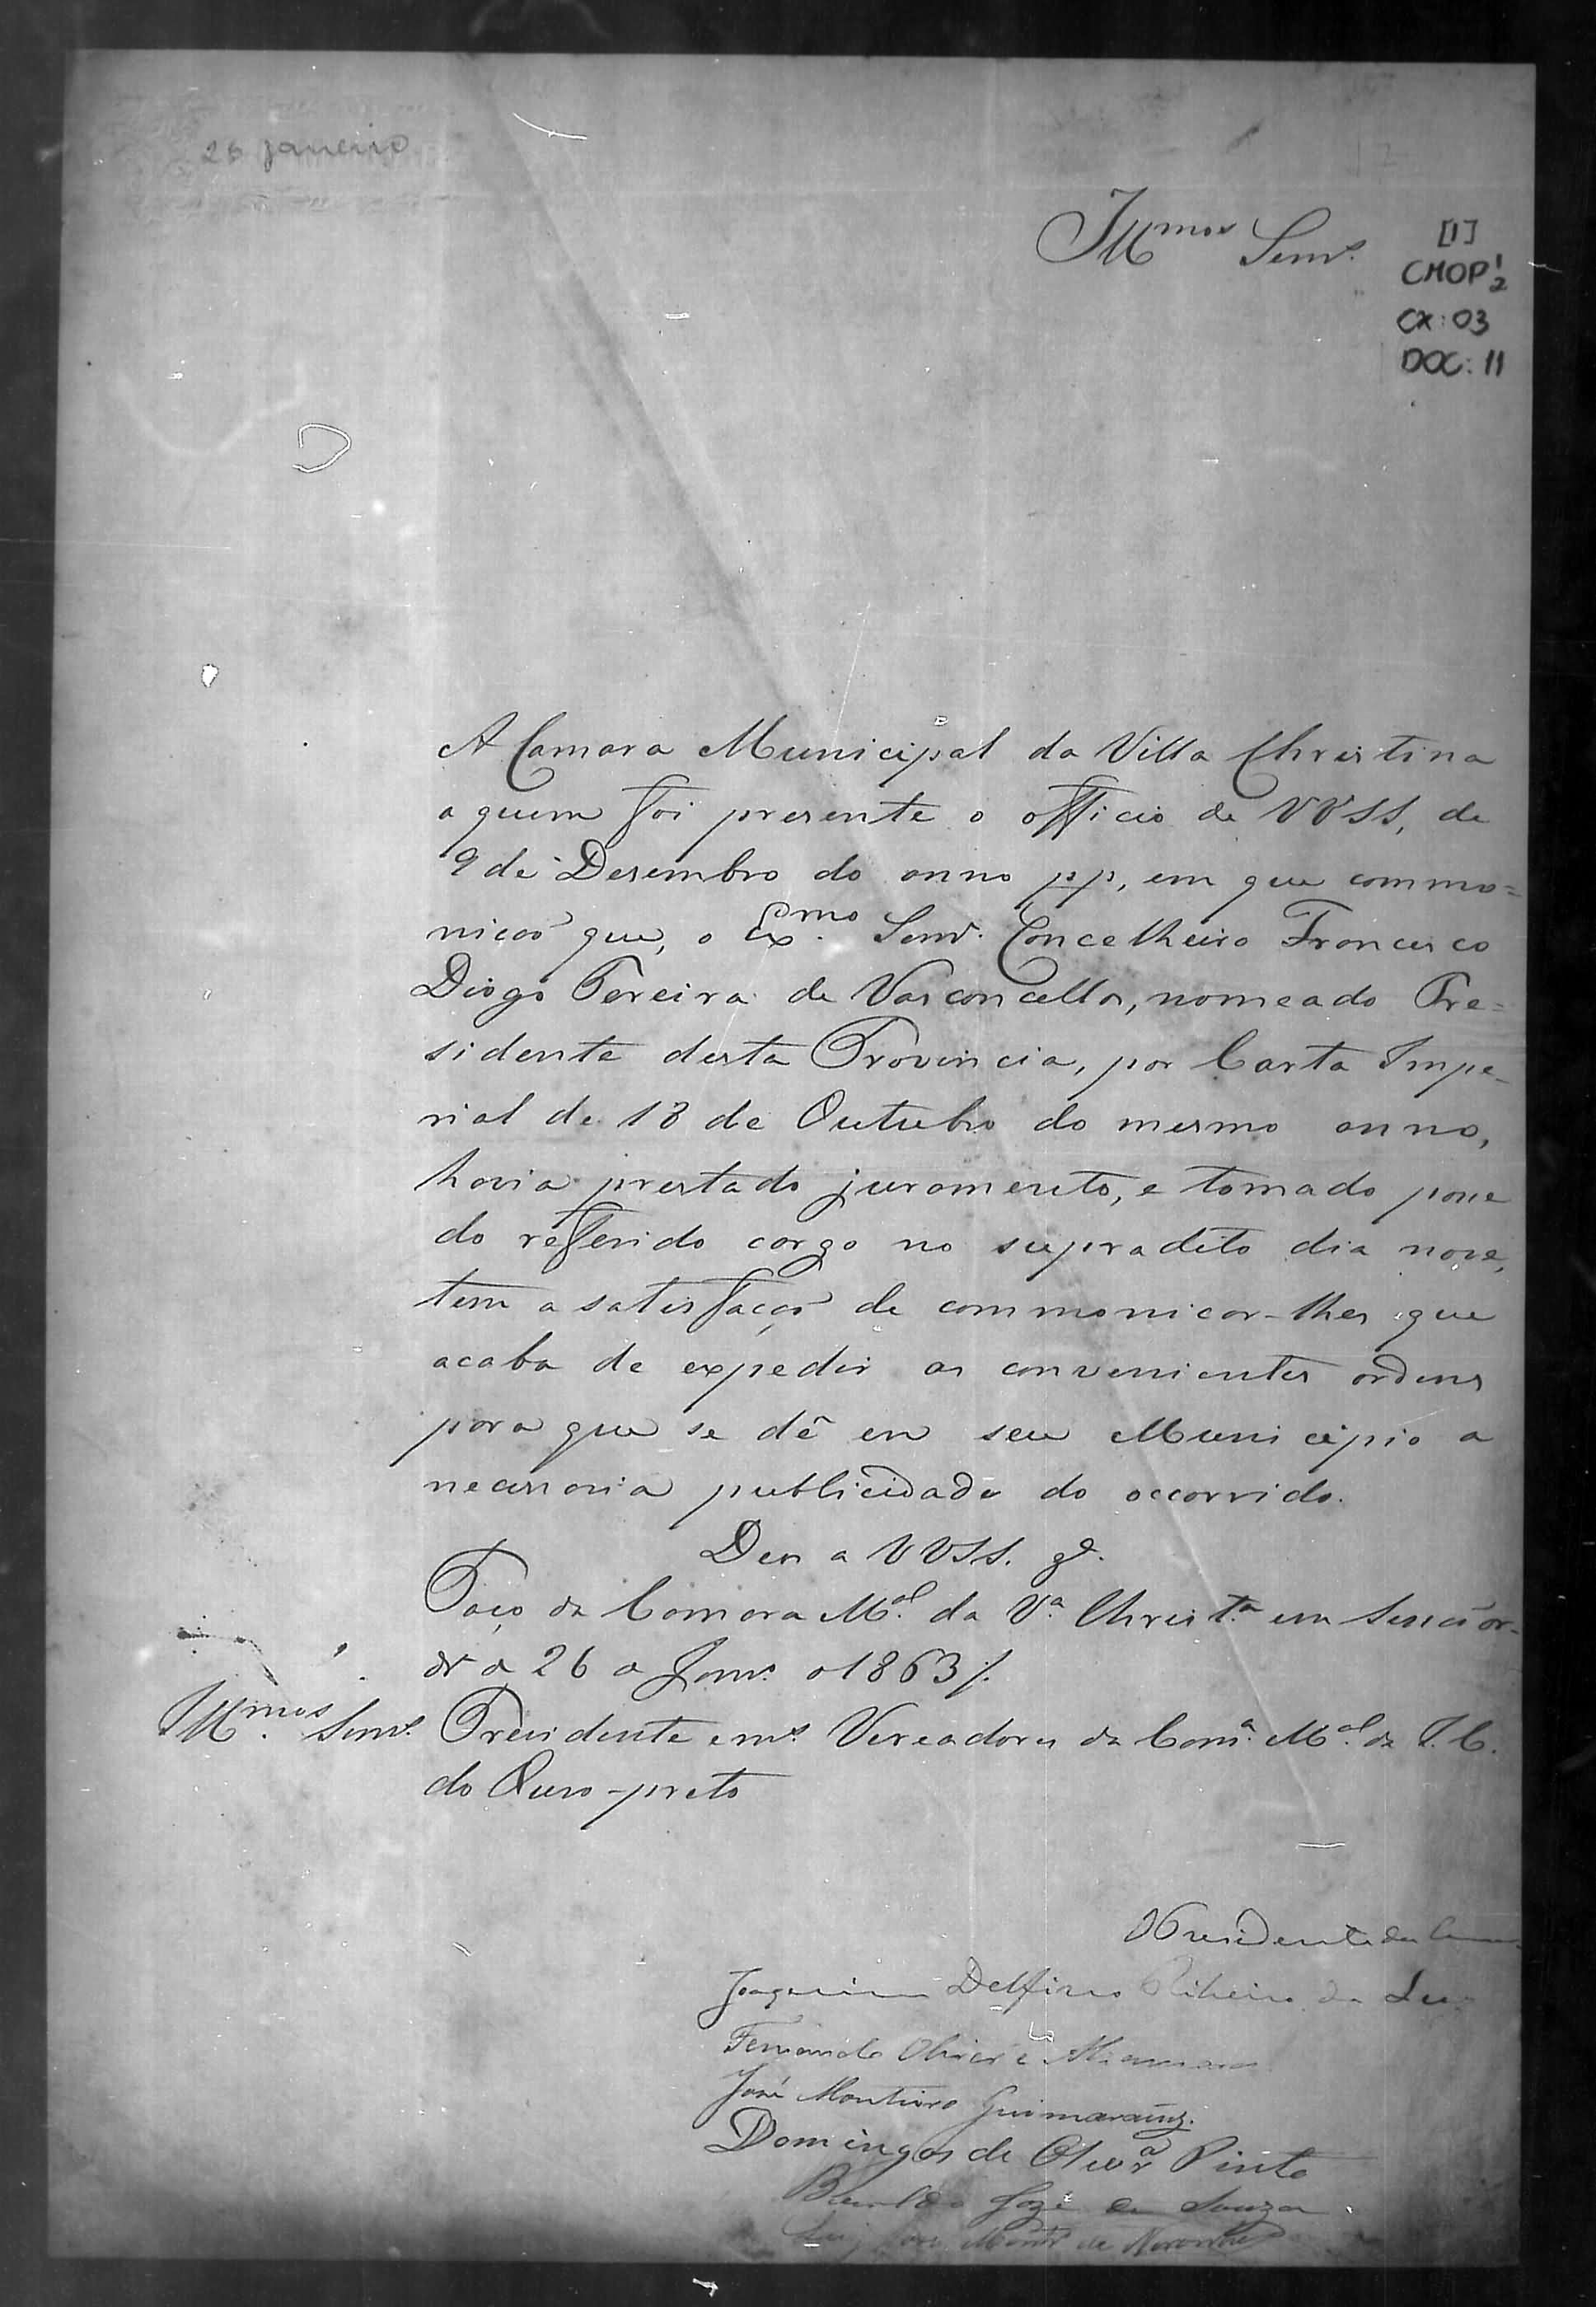 26 janeiro
Illmos Senrs.
[1]
CMOP 1/2
CX: 03
DOC: 11
A Camara Municipal da Villa Christina
a quem foi presente o officio de VVSS, de
9 de Desembro do anno pp, em que commo=
nicaõ que, o Exmo. Senr. Concelheiro Francisco
Diogo Pereira de Vasconcellos, nomeado Pre=
sidente desta Provincia, por Carta Impe-
rial de 18 de Outubro do mesmo anno,
havia prestado juramento, e tomado posse
do referido cargo no supradito dia nove,
tem a satisfaçaõ de commonicar-lhes que
acaba de expedir as convenientes ordens
para que se dê em seu Municipio a
necessaria publicidade do occorrido.
Deos a VVSS. gde.
Paço da Camara Mal. da Va. Christa. em Sessaõ or-
dra 26 a Janro. a 1863/.
Illmos. Senrs. Presidente e ms. Vereadores da Cama. Mal. da I. C.
do Ouro-preto
O Presidente da
Joaquim Delfino Ribeiro da Luz
Fernando
José Monteiro Guimaraens.
Domingos de Olivra Pinto
Joze de Souza
de Noronha